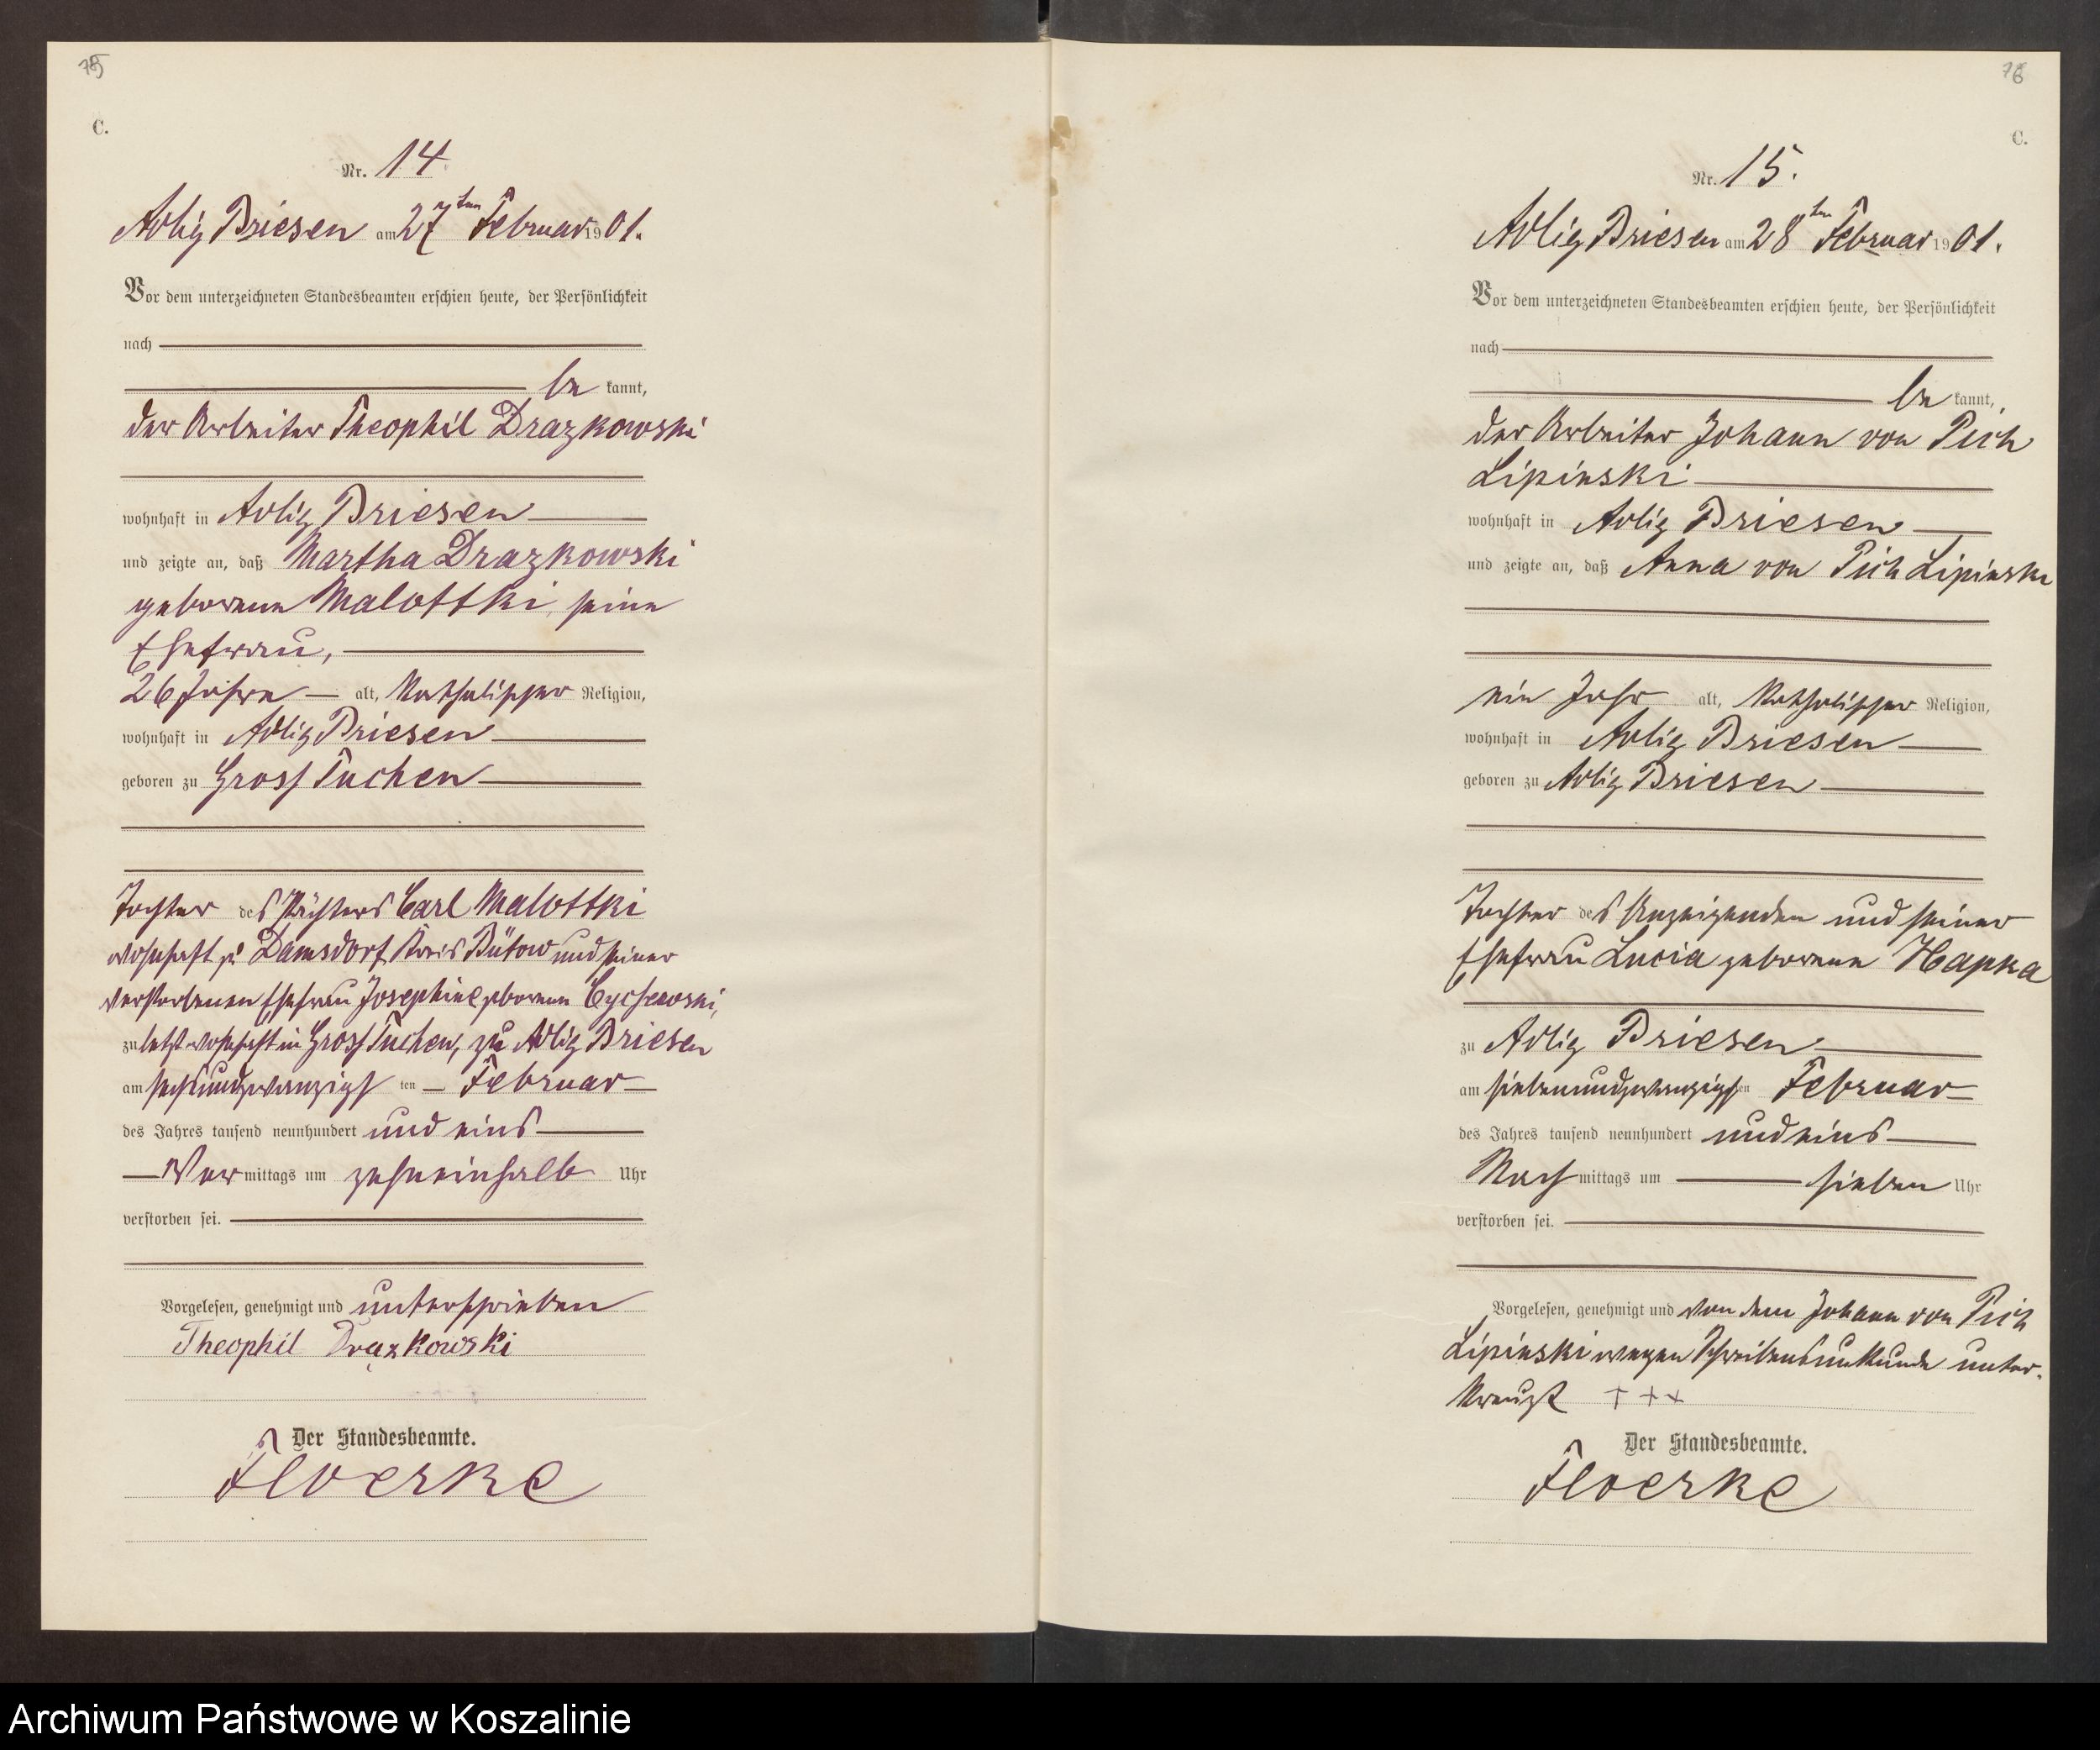 75
C.
Nr. 14.
Adlig Briesen am 27ten Februar 1901.
Vor dem unterzeichneten Standesbeamten erschien heute, der Persönlichkeit
nach
be kannt,
der Arbeiter Theophil Drazkowski
wohnhaft in Adlig Briesen
und zeigte an, daß Martha Drazkowski
geborene Malottki, seine
Ehefrau,
26 Jahre alt, katholischer Religion,
wohnhaft in Adlig Briesen
geboren zu Gross Tuchen
Tochter des Pächters Carl Malottki
wohnhaft zu Damsdorf Kreis Bütow und seiner
verstorbenen Ehefrau Josephine geborenen
zuletzt wohnhaft in Gross Tuchen, zu Adlig Briesen
am sechsundzwanzigsten Februar
des Jahres tausend neunhundert und eins
Vormittags um zehneinhalb Uhr
verstorben sei.
Vorgelesen, genehmigt und unterschrieben
Theophil Drązkowski
Der Standesbeamte.
Floerke
76
C.
Nr. 15.
Adlig Briesen am 28ten Februar 1901.
Vor dem unterzeichneten Standesbeamten erschien heute, der Persönlichkeit
nach
be kannt,
der Arbeiter Johann von Pich
Lipinski
wohnhaft in Adlig Briesen
und zeigte an, daß Anna von Pich Lipinski
ein Jahr alt, katholischer Religion,
wohnhaft in Adlig Briesen
geboren zu Adlig Briesen
Tochter des Anzeigenden und seiner
Ehefrau Lucia geborene Hapka
zu Adlig Briesen
am siebenundzwanzigsten Februar
des Jahres tausend neunhundert und eins
Nachmittags um sieben Uhr
verstorben sei.
Vorgelesen, genehmigt und von dem Johann von Pich
Lipinski wegen Schreibensunkunde unter-
kreuzt + + +
Der Standesbeamte.
Floerke
Archiwum Państwowe w Koszalinie